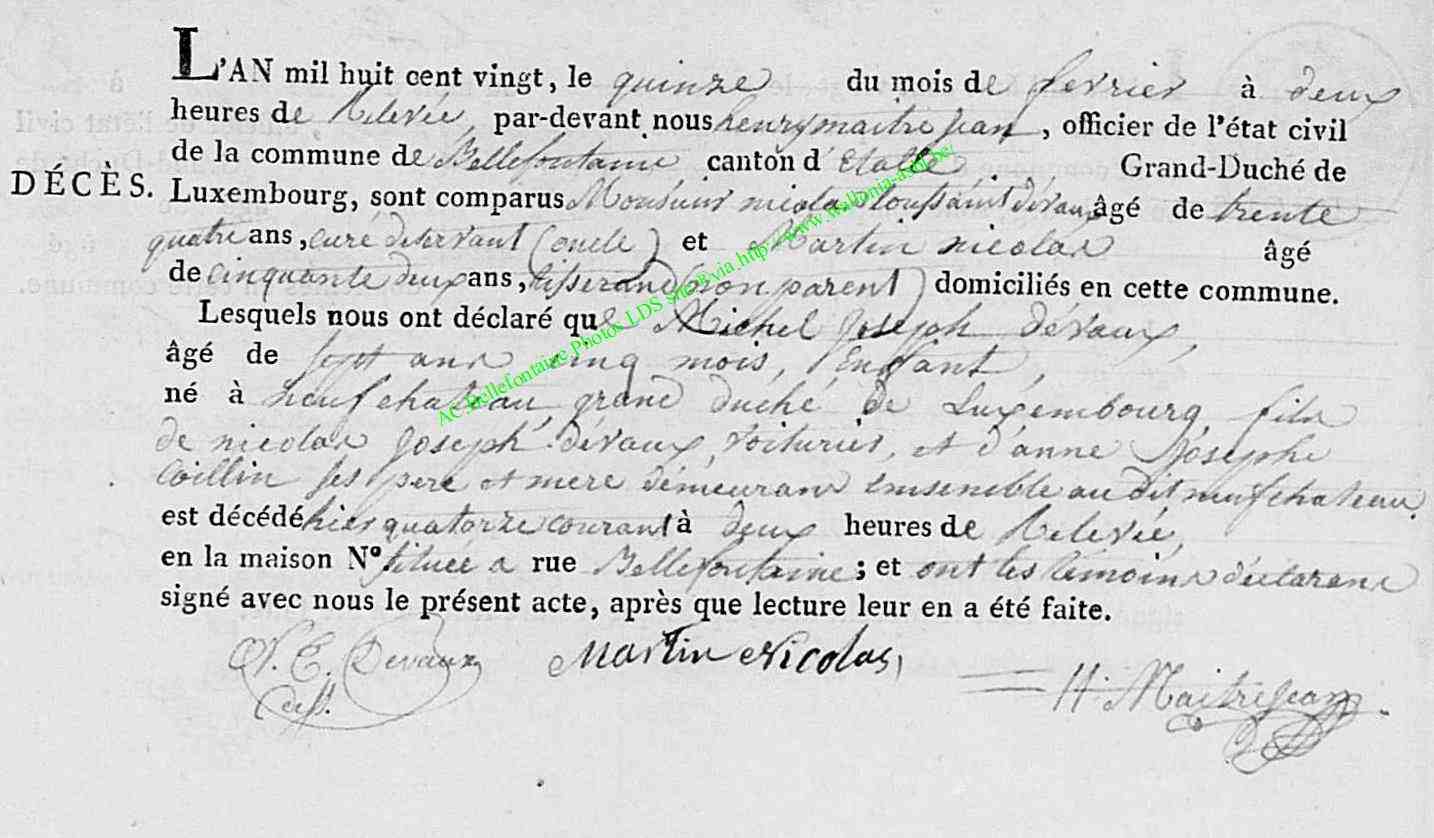 L'AN mil huit cent vingt, le quinze du mois de fevrier à deux
heures de Relevée, par-devant nous henry maitrejean, officier de l'état civil
de la commune de Bellefontaine canton d' Etalle. Grand-Duché de
DÉCÈS. Luxembourg, sont comparus Monsieur nicolas toussaint devaux âgé de trente
quatre ans, curé deservant (oncle) et Martin nicolas âgé
de cinquante deux ans, tisserand (non parent) domiciliés en cette commune.
Lesquels nous ont déclaré que Michel Joseph devaux,
âgé de sept ans cinq mois, Enfant,
né à neufchateau, grand duché de Luxembourg, fils
de nicolas Joseph devaux, voiturier, et d'anne Josephe
Coillin ses pere et mere demeurans Ensemble au dit neufchateau.
est décédé hier quatorze courant à deux heures de Relevée,
en la maison N° située a rue Bellefontaine; et ont les témoins déclarans
signé avec nous le présent acte, après que lecture leur en a été faite.
N. T. Devaux Martin Nicolas, H. Maitrejean
AC Bellefontaine Photos LDS site via http://www.wallonia-asbl.be/